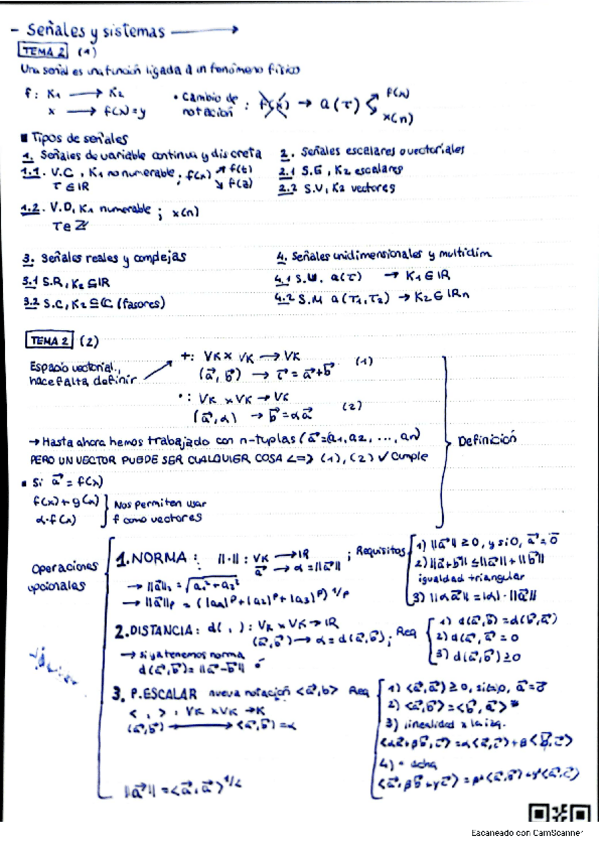 - Señales y sistemas ⟶
TEMA 2 (1)
Una señal es una función ligada a un fenómeno físico
f: K1 ⟶ K2 • Cambio de notación : f(x) → a(τ) f(x)
x ⟶ f(x)=y x(n)
■ Tipos de señales
1. Señales de variable continua y discreta
1.1. V.C, K1 no numerable; f(x) f(t)
T ∈ IR f(z)
1.2. V.D, K1 numerable ; x(n)
T e Z
2. Señales escalares o vectoriales
2.1 S.E, K2 escalares
2.2 S.V, K2 vectores
3. Señales reales y complejas
3.1 S.R, K2 ⊆ IR
3.2 S.C, K2 ⊆ C (fasores)
4. Señales unidimensionales y multidim
4.1 S.U. a(τ) → K1 ∈ IR
4.2 S.M a(τ1, τ2) → K2 ∈ IRn
TEMA 2 (2)
Espacio vectorial, hace falta definir
+: VK x VK ⟶ VK (1)
(a⃗, b⃗) → c⃗ = a⃗+b⃗
•: VK x VK → VK (2)
(a⃗, α) → b⃗ = αa⃗
→ Hasta ahora hemos trabajado con n-tuplas (a⃗=(a1, a2, ..., an)
PERO UN VECTOR PUEDE SER CUALQUIER COSA <=> (1), (2) ✓ cumple
Definición
▪ Si a⃗ = f(x)
f(x)+g(x)
α·f(x)
Nos permiten usar
f como vectores
Operaciones
opcionales
1. NORMA : ||·|| : VK ⟶ IR ; Requisitos
a⃗ → α = ||a⃗||
→ ||a⃗||2 = √(a1²+a2²)
→ ||a⃗||p = (|a1|^p+|a2|^p+|a3|^p)^1/p
1) ||a⃗|| ≥ 0, y si 0, a⃗=0⃗
2) ||a⃗+b⃗|| ≤ ||a⃗||+||b⃗||
igualdad triangular
3) ||αa⃗|| = |α|·||a⃗||
2. DISTANCIA: d( , ) : VK x VK → IR
(a⃗, b⃗) → α = d(a⃗, b⃗); Req
→ si ya tenemos norma
d(a⃗, b⃗) = ||a⃗-b⃗||
1) d(a⃗, b⃗) = d(b⃗, a⃗)
2) d(a⃗, a⃗) = 0
3) d(a⃗, b⃗) ≥ 0
3. P. ESCALAR nueva notación <a⃗, b> Req
< , > : VK x VK → K
(a⃗, b⃗) ⟶ <a⃗, b⃗> = α
||a⃗|| = <a⃗, a⃗>^1/2
1) <a⃗, a⃗> ≥ 0, si es 0, a⃗=0⃗
2) <a⃗, b⃗> = <b⃗, a⃗>*
3) linealidad x la izq.
<αa⃗+βb⃗, c⃗> = α<a⃗, c⃗> + β<b⃗, c⃗>
4) " dcha
<a⃗, βb⃗+γc⃗> = β*<a⃗, b⃗> + γ*<a⃗, c⃗>
Escaneado con CamScanner